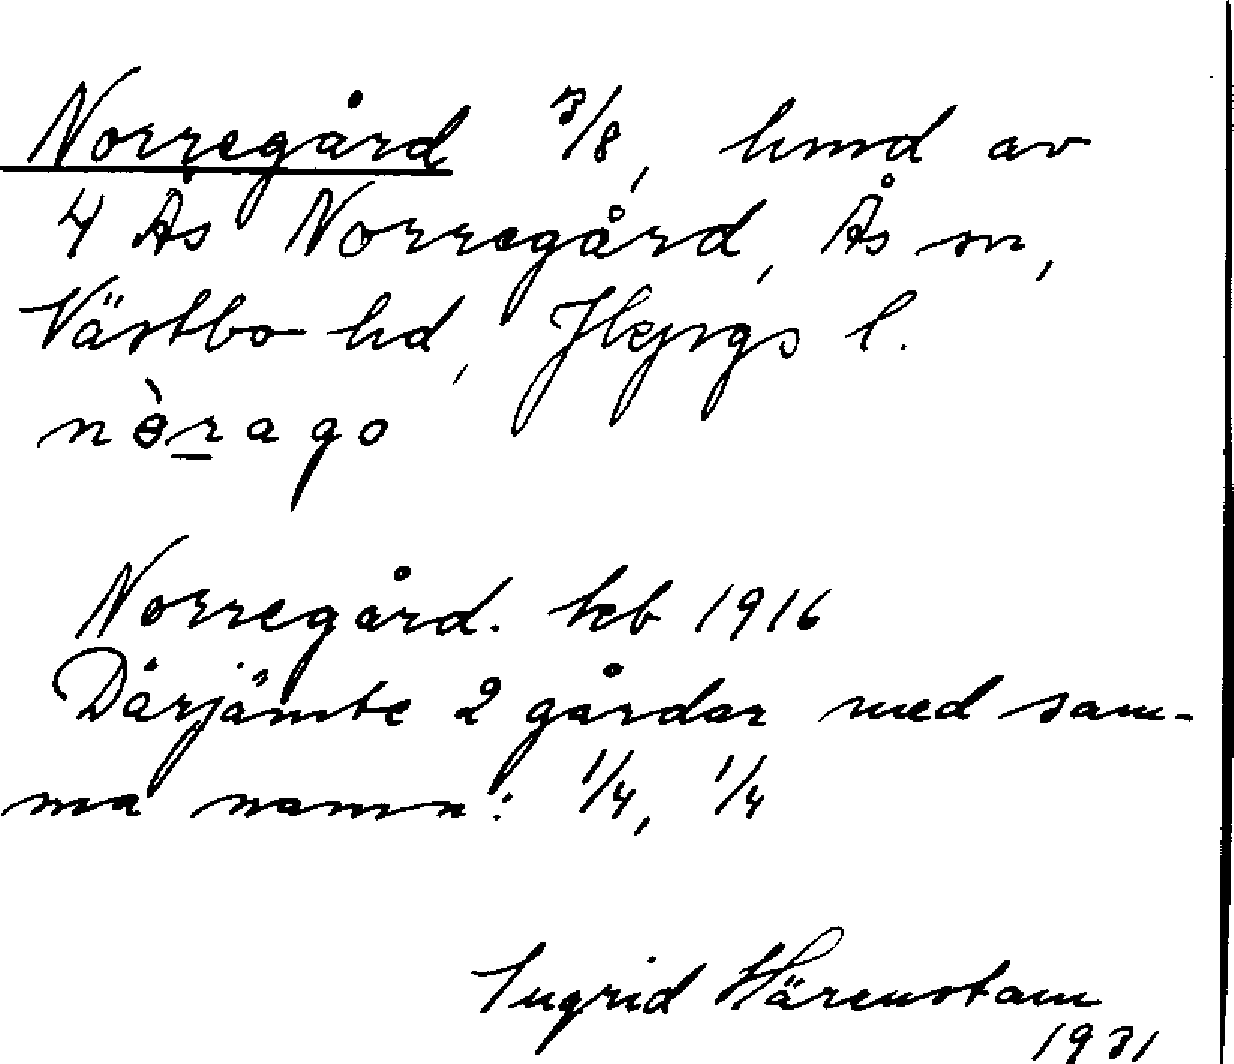 Norregård 3/8, hmd av
4 Ås Norregård, Ås sn,
Västbo hd, Jkpgs l.
nòrago
Norregård. kb 1916
Därjämte 2 gårdar med sam-
ma namn: 1/4, 1/4
Ingrid Härenstam
1931